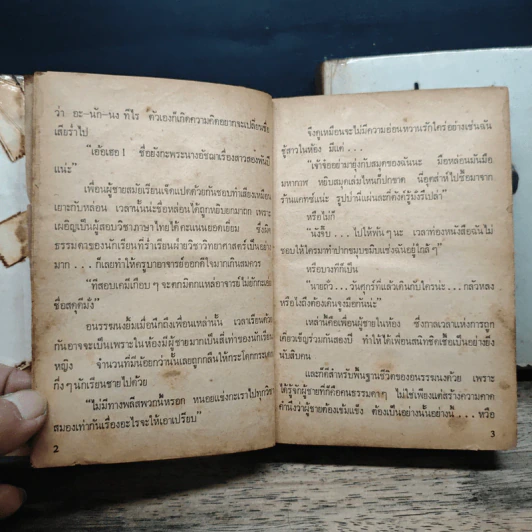 ว่า อะ-นัก-นง ทีไร ตัวเองก็เกิดความคิดอยากจะเปลี่ยนชื่อ
เสียว่าไป
"เอ้อเฮอ! ชื่อยังกะพระนางอัชฌาเรื่องสาวสองพันปี
แน่ะ"
เพื่อนผู้ชายสมัยเรียนเจ็ดแปดด้วยกันชอบทำเสียงเหมือน
เยาะกับหล่อน เวลานั้นน่ะชื่อหล่อนได้ถูกหยิบยกมาถก เพราะ
เผอิญเป็นผู้สอบวิชาภาษาไทยได้คะแนนยอดเยี่ยม ซึ่งผิด
ธรรมดาของนักเรียนที่ร่ำเรียนฝ่ายวิชาวิทยาศาสตร์เป็นอย่าง
มาก ...ก็เลยทำให้ครูบาอาจารย์ออกดีใจมากเกินสมควร
"ที่สอบเคมีเกือบ ๆ จะตกมิตกแหล่อาจารย์ไม่ยักกะเอ่ย
ชื่อสดุดีมั่ง"
อนรรฆนงยิ้มเมื่อนึกถึงเพื่อนเหล่านั้น เวลาเรียนด้วย
กันอาจจะเป็นเพราะในห้องมีผู้ชายมากเป็นสี่เท่าของนักเรียน
หญิง จำนวนที่มีน้อยกว่านั้นเลยถูกกลืนให้กระโดกกระเดก
กึ่ง ๆ นักเรียนชายไปด้วย
"ไม่มีทางพลีสพวกนี้หรอก หนอยแข่งกะเราไปทุกวิชา
สมองเท่ากันเรื่องอะไรจะให้เอาเปรียบ"
2
จึงดูเหมือนจะไม่มีความอ่อนหวานรักใคร่อย่างเช่นฉัน
ชู้สาวในห้อง มีแต่...
"เจ้าจ้อยอย่ามายุ่งกับสมุดของฉันนะ มือหล่อนมันมือ
มหากาฬ หยิบสมุดเล่มไหนก็ปกขาด นี่อุตส่าห์ไปซื้อมาจาก
ร้านแถทซ์แน่ะ รูปบ้านี่แผ่นละกี่ตังค์รู้มั่งรึเปล่า"
หรือไม่ก็
"นังจิ๊บ...ไปให้พ้น ๆ นะ เวลาท่องหนังสือฉันไม่
ชอบให้ใครมาทำปากขมุบขมิบแข่งฉันอยู่ใกล้ ๆ"
หรือบางทีก็เป็น
"นายถึ้ว...วันศุกร์ที่แล้วเดินกับใครน่ะ...กลัวหลง
หรือไงถึงต้องเดินจูงมือกันน่ะ"
เหล่านี้คือเพื่อนผู้ชายในห้อง ซึ่งกาลเวลาแห่งการถูก
เคี่ยวเข็ญร่วมกันสองปี ทำให้ได้เพื่อนสนิทชิดเชื้อเป็นอย่างยิ่ง
นับสิบคน
และก็ดีสำหรับพื้นฐานชีวิตของอนรรฆนงด้วย เพราะ
ได้รู้จักผู้ชายที่ก็คือคนธรรมดา ๆ ไม่ใช่เพียงแต่สร้างความคาด
คำนึงว่าผู้ชายต้องเข้มแข็ง ต้องเป็นอย่างนั้นอย่างนี้....หรือ
3